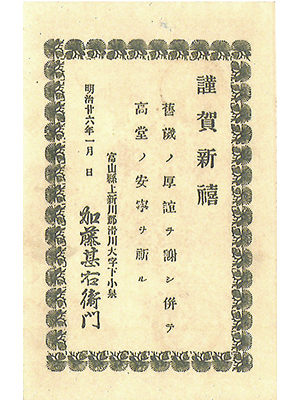 謹賀新禧
舊歲ノ厚誼ヲ謝シ併テ
高堂ノ安寧ヲ祈ル
明治廿六年一月 日
富山縣上新川郡滑川大字下小泉
加藤甚右衛門